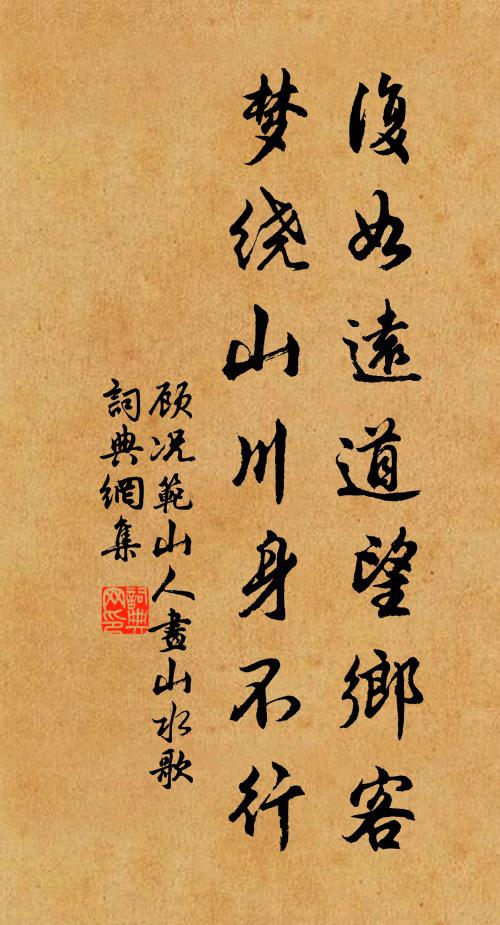 復如遠道望鄉客
梦绕山川身不行
顾况範山人畫山水歌
詞典網集
詞典网印